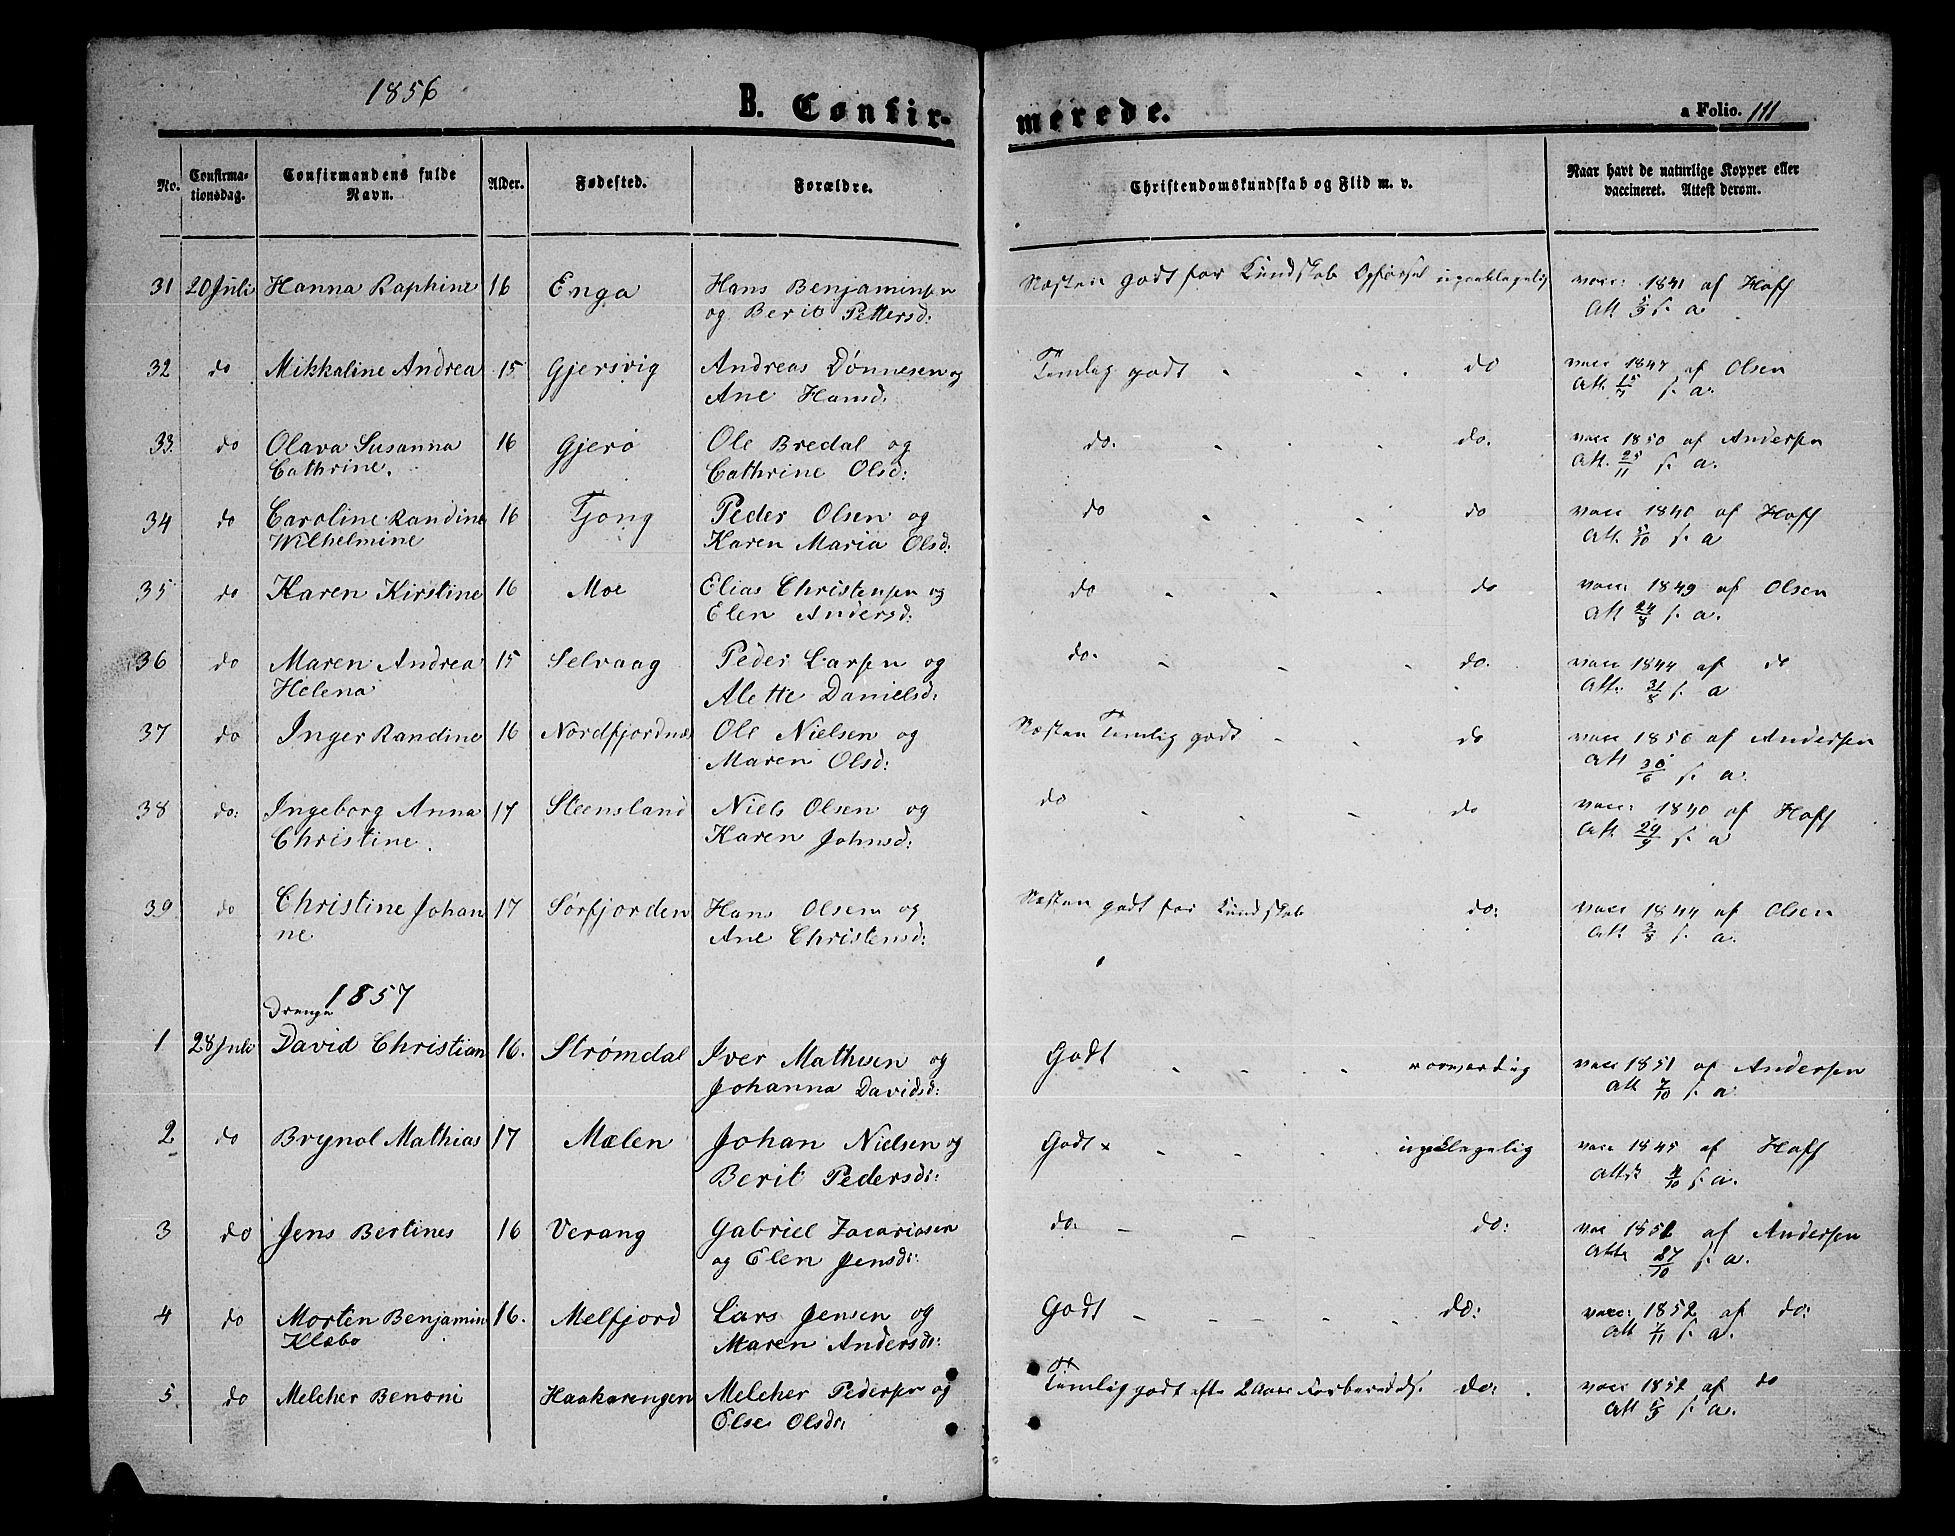 1856
B. Confir-
merede.
a Folio. 111
No.
Confirma-
tionsdag.
Confirmandens fulde
Navn.
Alder.
Fødested.
Forældre.
Christendomskundskab og Flid m. v.
Naar havt de naturlige Kopper eller
vaccineret. Attest derom.
31 20 Juli Hanna Raphine 16 Enga Hans Benjaminsen Næsten godt for Kundskab Opførsel upaaklagelig vacc: 1841 af Hoff
og Berit Pettersd: Att 5/9 s. a
32 do Mikkaline Andrea 15 Gjersvig Andreas Dønnesen og Temlig godt do vacc 1847 af Olsen
Ane Hansd: Att. s. a.
33. do Olava Susanna 16 Gjerø Ole Bredal og do. do. vacc 1850 af Andersen
Cathrine. Cathrine Olsd: Att. 25/11 s. a.
34 do Caroline Randine 16 Tjong Peder Olsen og do do vacc 1840 af Hoff
Wilhelmine Karen Maria Olsd: Att. 5/10 s. a
35 do Karen Kirstine 16 Moe Elias Christensen og do do vacc 1849 af Olsen
Elen Andersd: Att 24/8 s. a.
36 do Maren Andrea 15 Selvaag Peder Larsen og do. do. vacc 1844 af do
Helena Alette Danielsd: Att. 31/8 s. a
37 do Inger Randine 16 Nordfjordnæs Ole Nielsen og Næsten Temlig godt do vacc 1850 af Andersen
Maren Olsd: Att 30/6 s. a.
38 do: Ingeborg Anna 17 Steensland Niels Olsen og do do vacc: 1840 af Hoff
Christine. Karen Johnsd: Att. 29/9 s. a
39 do Christine Johan 17 Sørfjorden Hans Olsen og Næsten godt for Kundskab do: vacc 1844 af Olsen
ne Ane Christensd: Att. 3/8 s. a.
1857
Drenge
1 28 Juli David Christian 16. Strømdal Iver Mathisen og Godt vacc 1851 af Andersen
Johanna Davidsd: Att 7/10 s. a
2 do Brynol Mathias 17 Mælen Johan Nielsen og Godt upaaklagelig vacc 1845 af Hoff
Berit Pedersd: Att: 4/10 s. a.
3 do Jens Bertines 16 Verang Gabriel Zacariasen do. do: vac 1852 af Andersen
og Elen Jensd: Att. 27/10 s. a.
4 do Morten Benjamin 16. Melfjord Lars Jensen og Godt do: vacc: 1852 af do:
Klæbo Maren Andersd: Att 7/11 s. a.
5. do Melcher Benoni Haakarengen Melcher Pedersen og Temlig godt efter 2 Aars Forberedels. do: vacc 1852 af do
Else Olsd: Att 5/9 s. a.